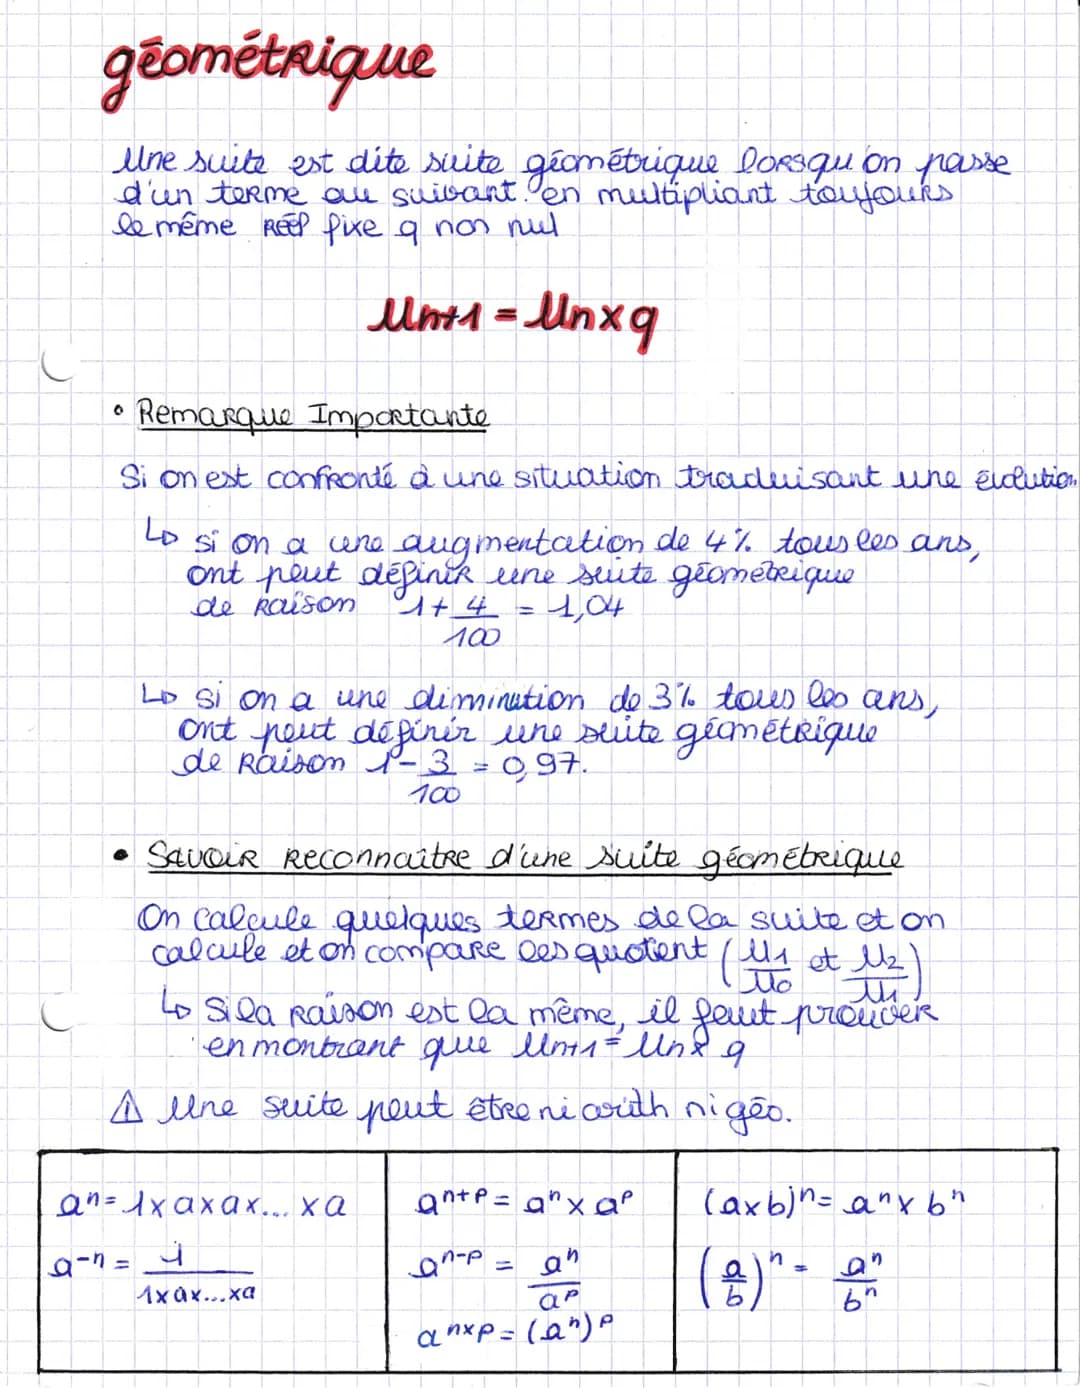 géométrique
Une suite est dite suite géométrique lorsqu'on passe
d'un terme au suivant en multipliant toujours
le même réel fixe q non nul
Un+1 = Un x q
• Remarque Importante
Si on est confronté à une situation traduisant une évolution
↳ si on a une augmentation de 4% tous les ans,
ont peut définir une suite géométrique
de raison 1 + 4/100 = 1,04
↳ si on a une diminution de 3% tous les ans,
ont peut définir une suite géométrique
de raison 1 - 3/100 = 0,97.
• Savoir reconnaître d'une suite géométrique
On calcule quelques termes de la suite et on
calcule et on compare les quotent (U1/U0 et U2/U1)
↳ Si la raison est la même, il faut prouver
en montrant que Un+1 = Un x q
⚠ Une suite peut être ni arith ni géo.
aⁿ = 1 x a x a x ... x a
a⁻ⁿ = 1/(1 x a x ... x a)
aⁿ⁺ᵖ = aⁿ x aᵖ
aⁿ⁻ᵖ = aⁿ/aᵖ
aⁿˣᵖ = (aⁿ)ᵖ
(a x b)ⁿ = aⁿ x bⁿ
(a/b)ⁿ = aⁿ/bⁿ